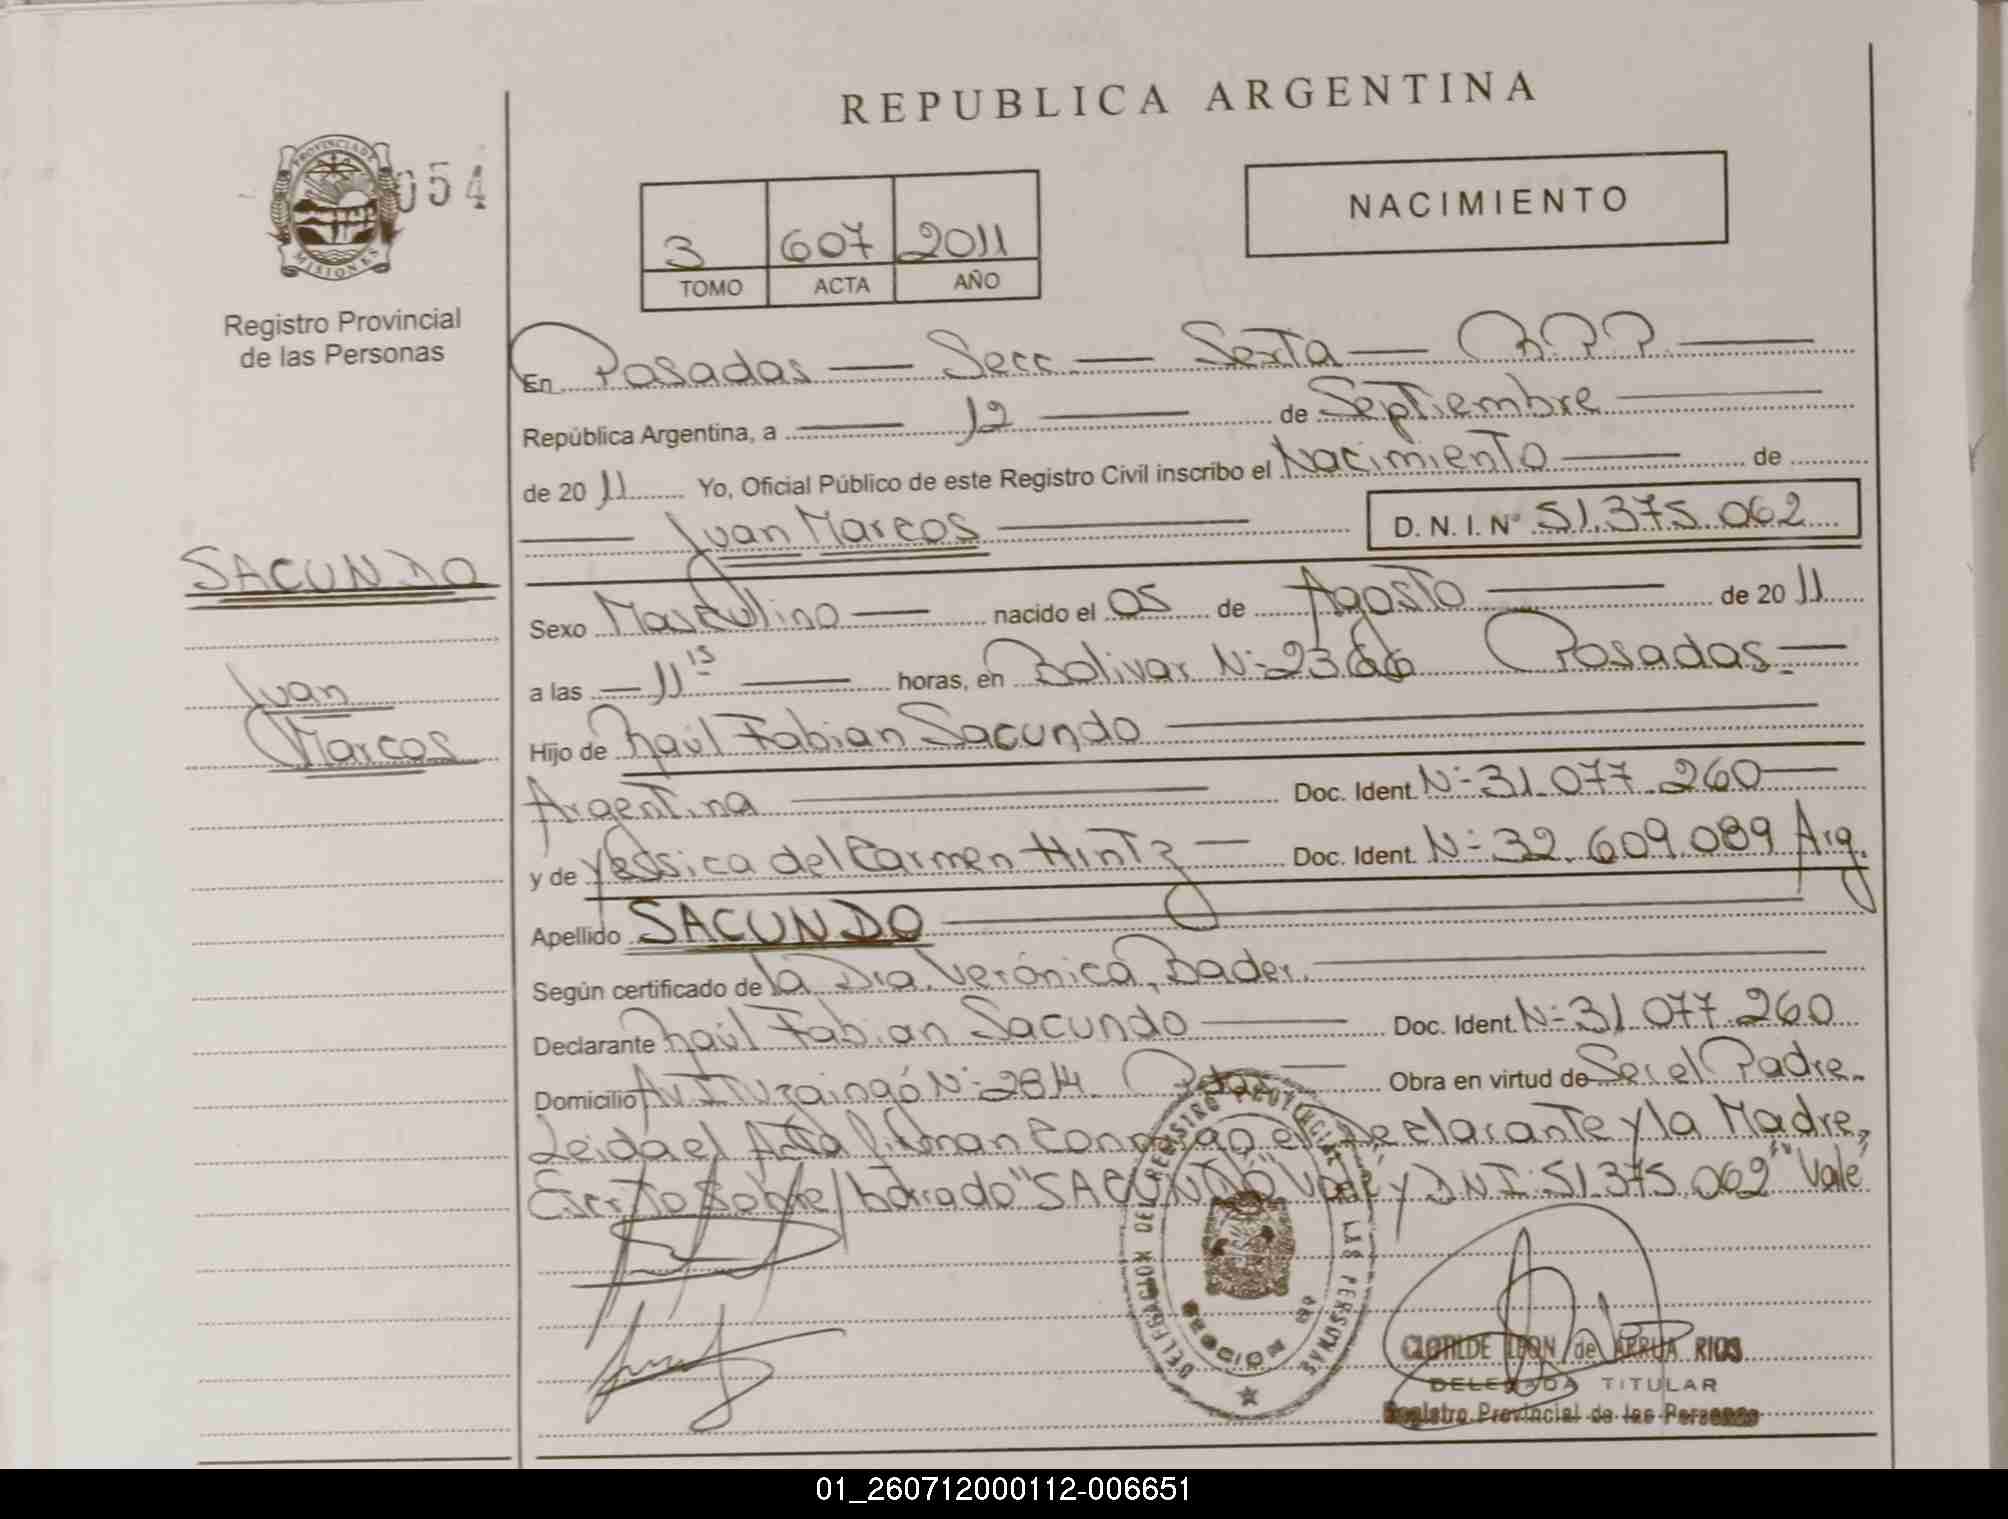 REPUBLICA ARGENTINA
PROVINCIA DE MISIONES
054
NACIMIENTO
3 607 2011
TOMO ACTA AÑO
Registro Provincial
de las Personas
En Posadas — Secc — Sexta — R.P.P. —
República Argentina, a — 12 — de Septiembre —
de 2011 Yo, Oficial Público de este Registro Civil inscribo el Nacimiento — de
— Juan Marcos — D.N.I. Nº 51.375.062
SACUNDO
Juan
Marcos
Sexo Masculino — nacido el 05 de Agosto — de 2011
a las — 11 15 — horas, en Bolivar Nº 2366 Posadas —
Hijo de Raúl Fabian Sacundo —
Argentina — Doc. Ident. Nº 31.077.260 —
y de Yessica del Carmen Hintz — Doc. Ident. Nº 32.609.089 Arg.
Apellido SACUNDO —
Según certificado de la Dra. Verónica, Bader. —
Declarante Raúl Fabian Sacundo — Doc. Ident. Nº 31.077.260
Domicilio Av. Ituzaingó Nº 2814 Pdas — Obra en virtud de Ser el Padre.
Leida el Acta firman Conmigo el Declarante y la Madre,
Escrito Sobre/borrado "SACUNDO" Vale y DNI: 51.375.062 "Vale"
DELEGACION DEL REGISTRO PROVINCIAL DE LAS PERSONAS
CLOTILDE LEON de ARRUA RIOS
DELEGADA TITULAR
Registro Provincial de las Personas
01_260712000112-006651